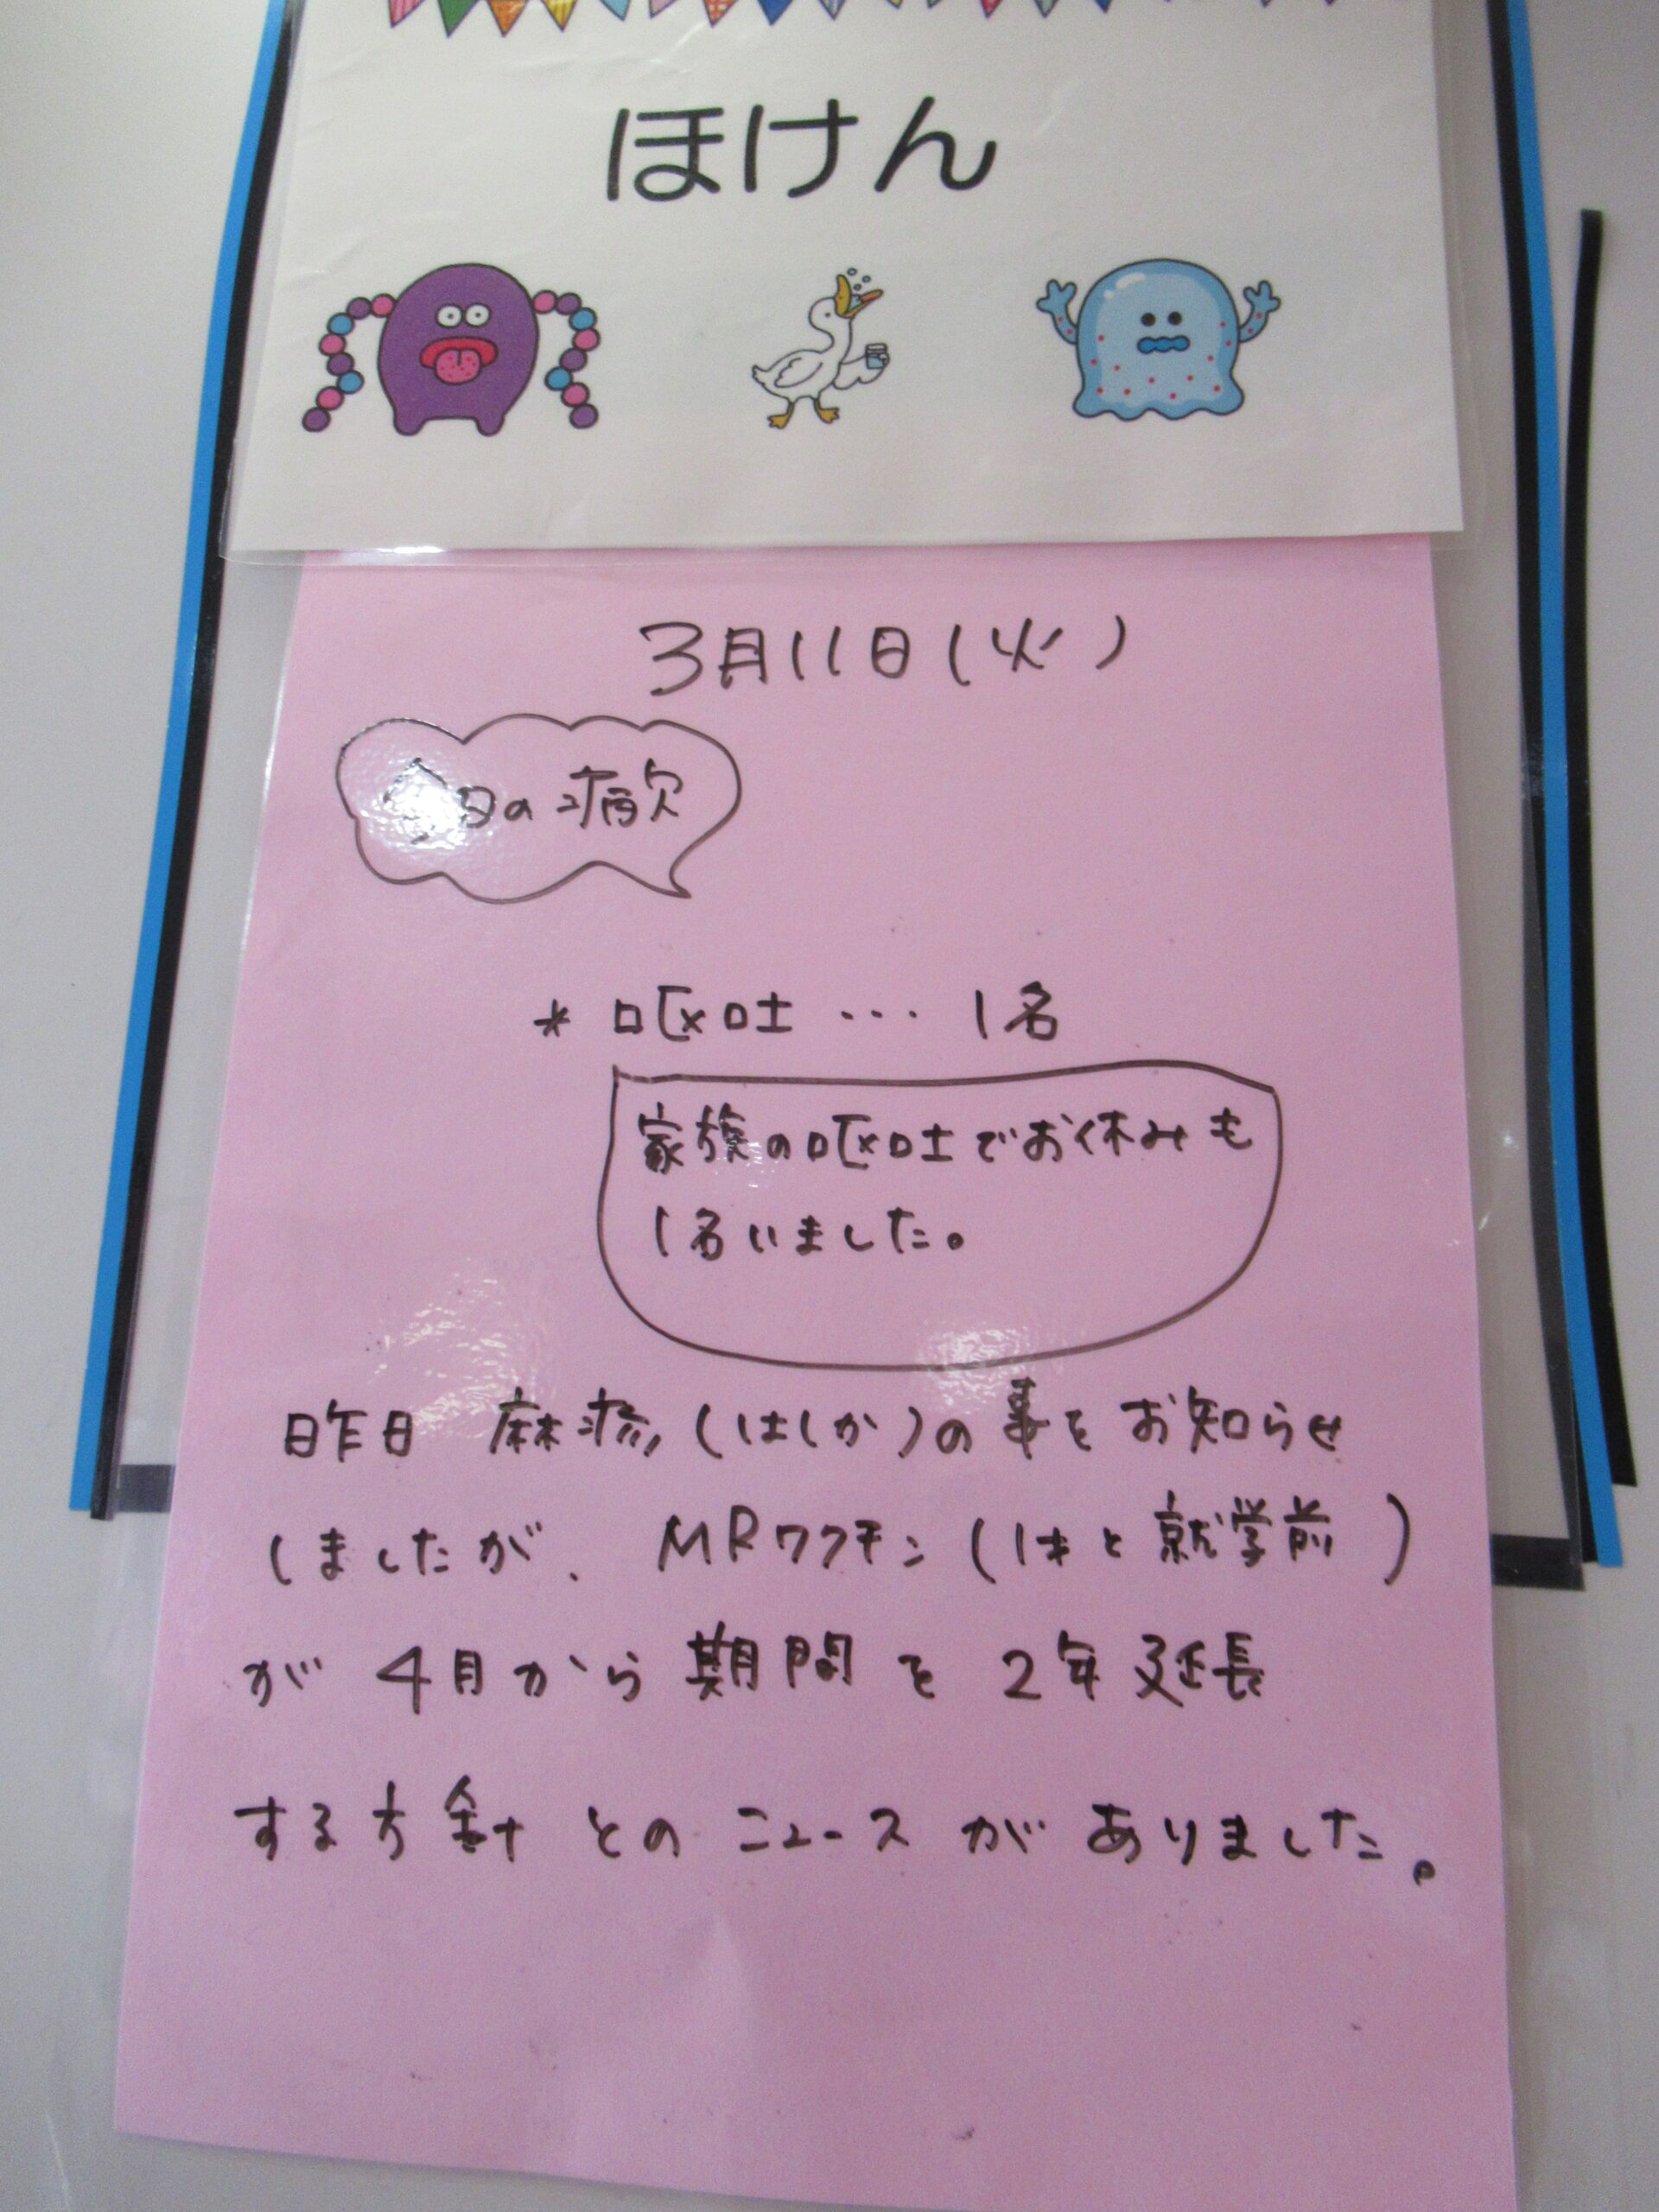 ほけん
3月11日(火)
今日の病欠
* 嘔吐 ··· 1名
家族の嘔吐でお休みも
1名いました。
昨日 麻疹(はしか)の事をお知らせ
しましたが、MRワクチン(1才と就学前)
が 4月から期間を2年延長
する方針とのニュースがありました。